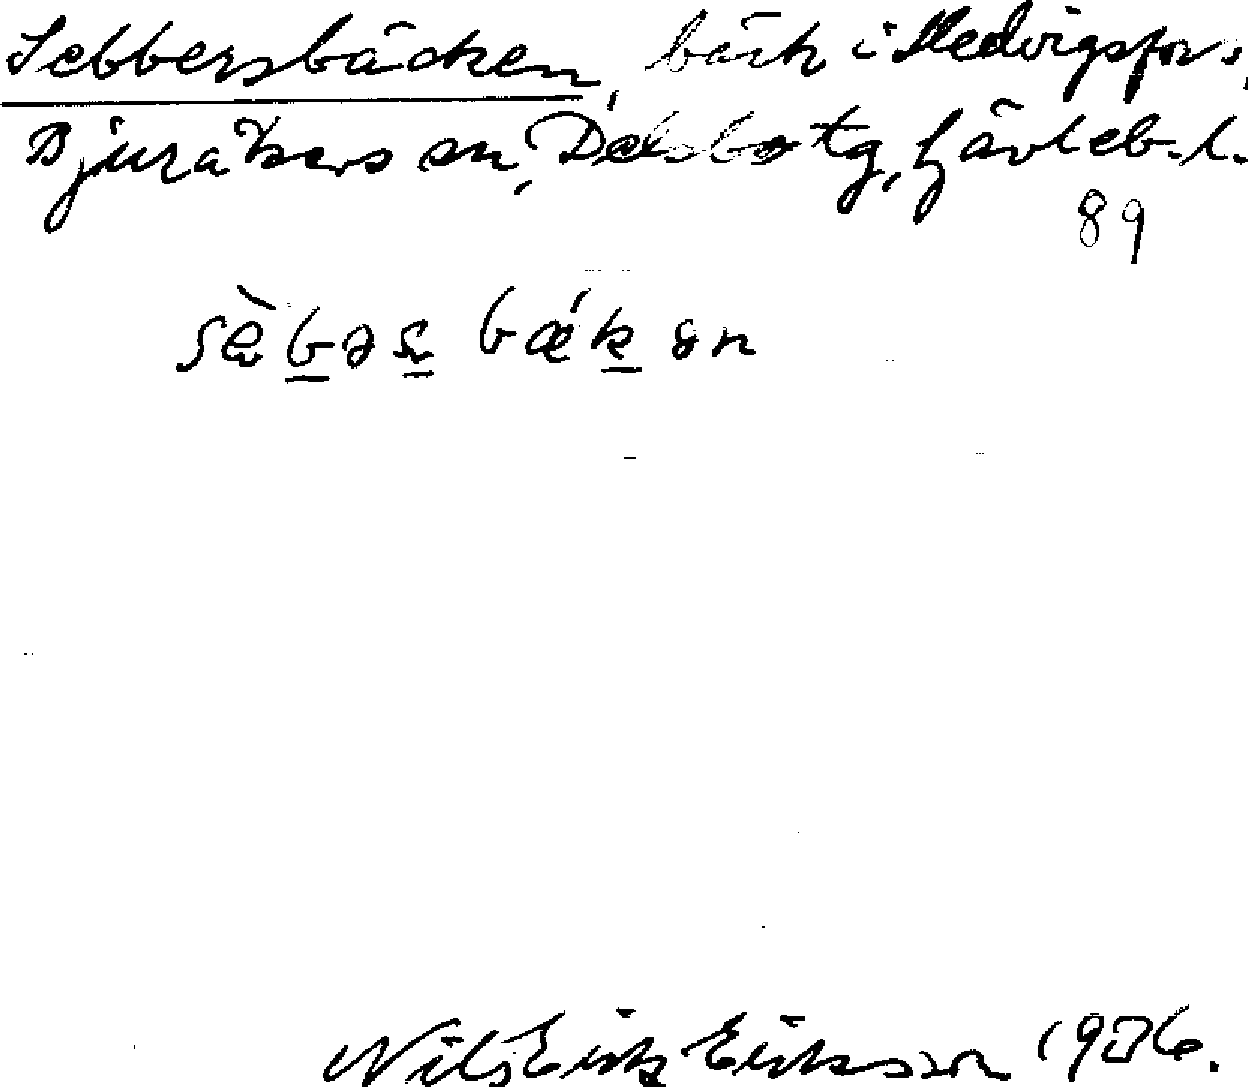 Sebbersbäcken, bäck i Hedvigsfors,
Bjuråkers sn, Delsbo tg, Gävleb. l.
89
sὲbəs bǽkən
Nils Erik Eriksson 1906.